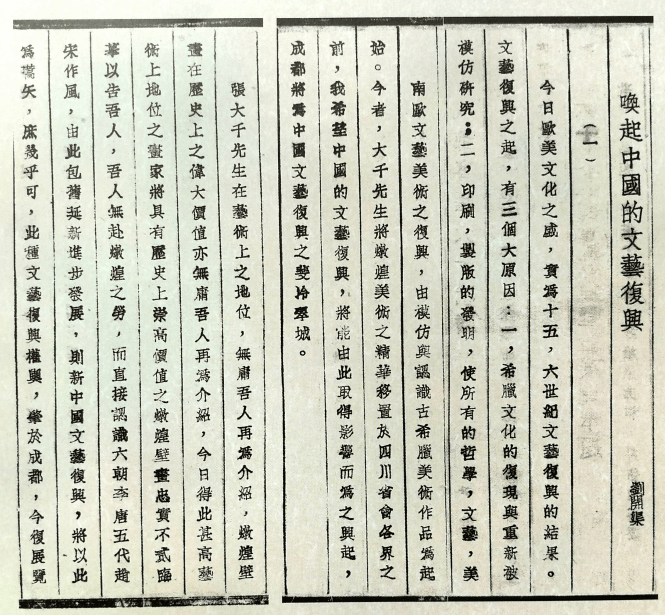 喚起中國的文藝復興
劉開渠
(一)
今日歐美文化之盛,實為十五,六世紀文藝復興的結果。
文藝復興之起,有三個大原因:一,希臘文化的復現與重新被
模仿研究;二,印刷,製版的發明,使所有的哲學,文藝,美
南歐文藝美術之復興,由模仿與認識古希臘美術作品為起
始。今者,大千先生將燉煌美術之精華移置於四川省會各界之
前,我希望中國的文藝復興,將能由此取得影響而為之興起,
成都將為中國文藝復興之斐冷翠城。
張大千先生在藝術上之地位,無庸吾人再為介紹,燉煌壁
畫在歷史上之偉大價值亦無庸吾人再為介紹,今日得此甚高藝
術上地位之畫家將具有歷史上崇高價值之燉煌壁畫忠實不貳臨
摹以告吾人,吾人無赴燉煌之勞,而直接認識六朝李唐五代趙
宋作風,由此包舊誕新進步發展,則新中國文藝復興,將以此
為嚆矢,庶幾乎可,此種文藝復興權輿,肇於成都,今復展覽